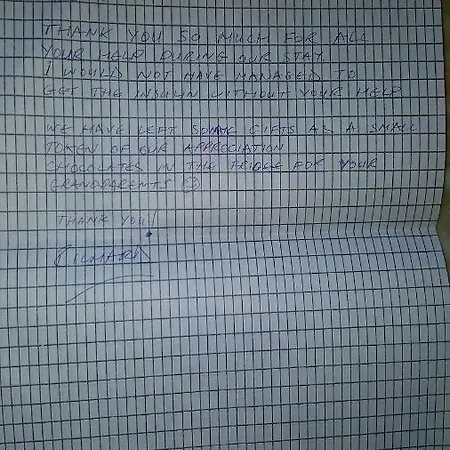 THANK YOU SO MUCH FOR ALL
YOUR HELP DURING OUR STAY.
I WOULD NOT HAVE MANAGED TO
GET THE INSULIN WITHOUT YOUR HELP
WE HAVE LEFT SOME GIFTS AS A SMALL
TOKEN OF OUR APPROCIATION
CHOCOLATES IN THE FRIDGE FOR YOUR
GRANDPARENTS ☺
THANK YOU!
RICHARD